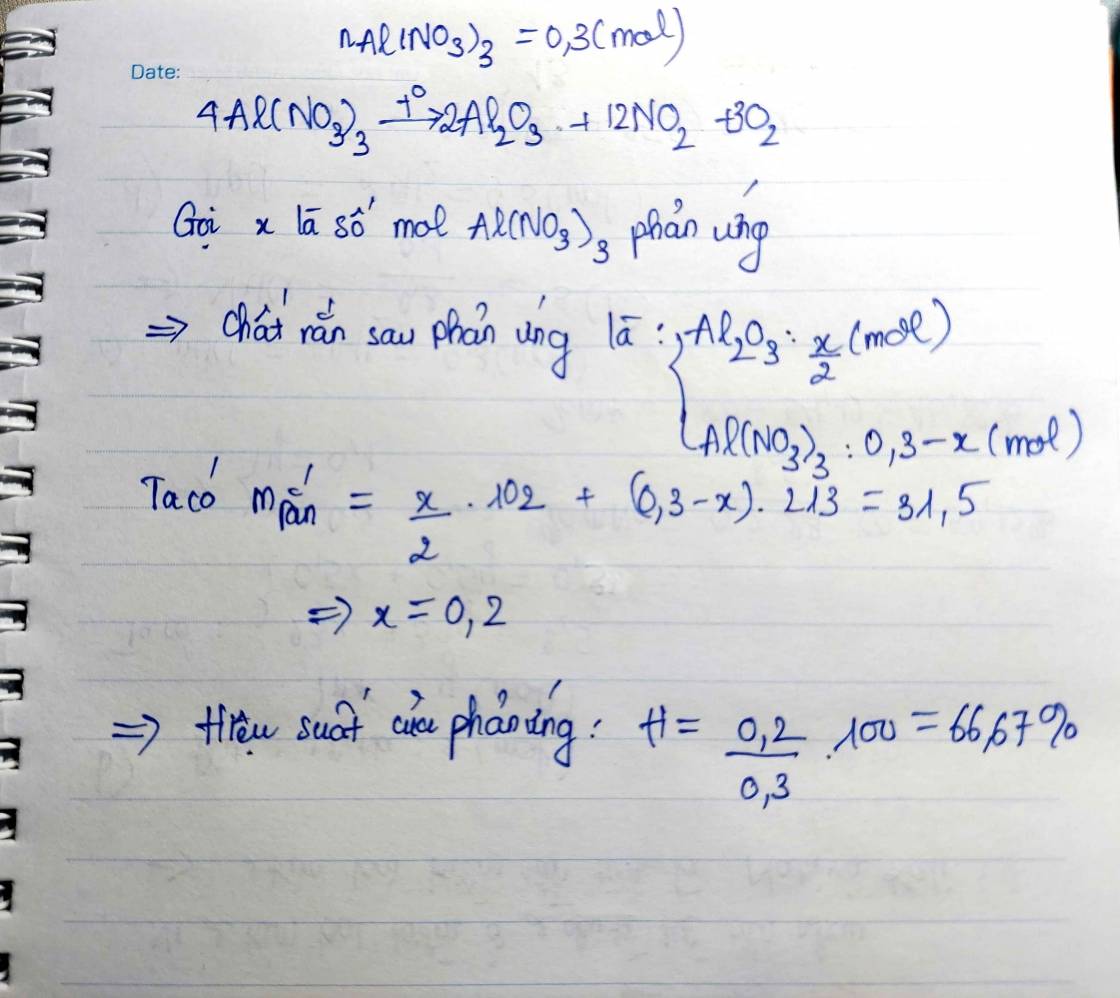 nAl(NO₃)₃ = 0,3(mol)
Date:
4Al(NO₃)₃ —t⁰→ 2Al₂O₃ + 12NO₂ + 3O₂
Gọi x là số mol Al(NO₃)₃ phản ứng
=> Chất rắn sau phản ứng là : { Al₂O₃ : x/2 (mol)
Al(NO₃)₃ : 0,3 - x (mol)
Ta có m rắn = x/2 . 102 + (0,3 - x). 213 = 31,5
=> x = 0,2
=> Hiệu suất của phản ứng : H = 0,2/0,3 . 100 = 66,67%